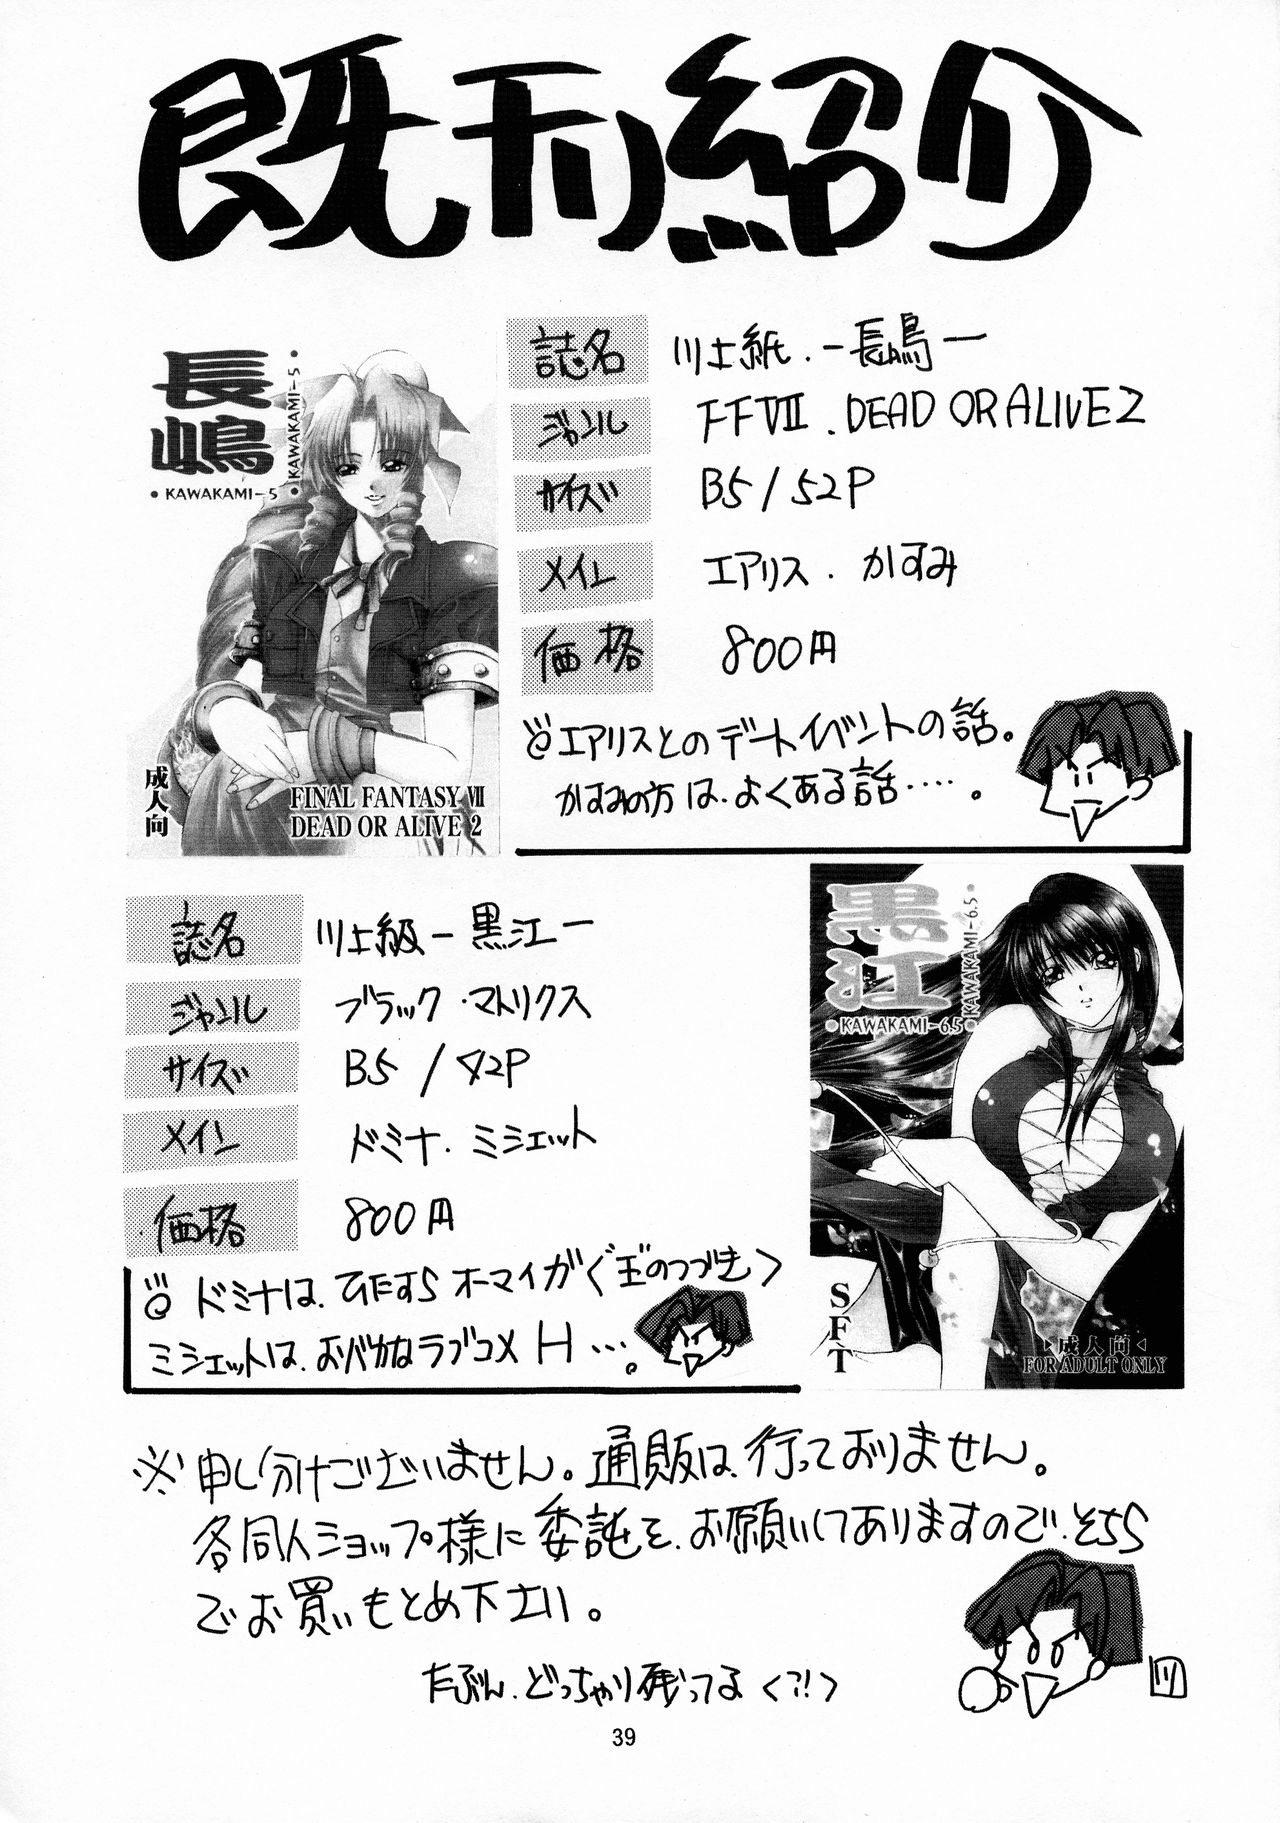 既刊紹介
長嶋
・KAWAKAMI-5・
KAWAKAMI-5・
成人向
FINAL FANTASY Ⅶ
DEAD OR ALIVE 2
誌名 川上紙.－長嶋－
ジャンル FFⅦ.DEAD OR ALIVE2
サイズ B5/52P
メイン エアリス.かすみ
価格 800円
エアリスとのデートイベントの話。
かすみの方は.よくある話‥‥。
誌名 川上級－黒江－
ジャンル ブラック・マトリクス
サイズ B5/42P
メイン ドミナ.ミシェット
価格 800円
ドミナは.ひたすらオーマイがぐ玉のつづき〉
ミシェットは.おバカなラブコメH‥‥。
黒江
・KAWAKAMI-6.5・
KAWAKAMI-6.5・
SFT
▷成人向◁
FOR ADULT ONLY
※申し分けございません。通販は.行っておりません。
各同人ショップ様に委託を.お願いしてありますので.そちら
でお買いもとめ下さい。
たぶん.どっちゃり残ってるく?!>
川
39